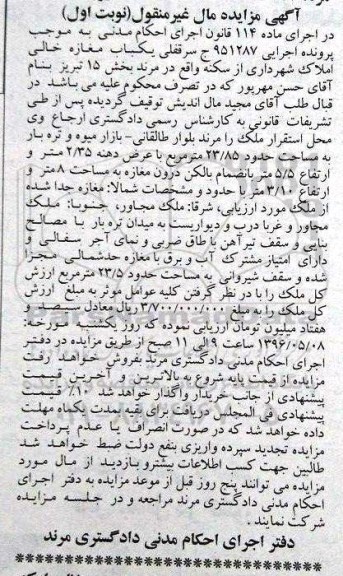 آگهی مزایده مال غیرمنقول(نوبت اول)
در اجرای ماده ۱۱۴ قانون اجرای احکام مدنی به موجب
پرونده اجرایی ۹۵۱۲۸۷ ج سرقفلی یکباب مغازه خالی
املاک شهرداری از سکنه واقع در مرند بخش ۱۵ تبریز بنام
آقای حسن مهرپور که در تصرف محکوم علیه می باشد در
قبال طلب آقای مجید مال اندیش توقیف گردیده پس از طی
تشریفات قانونی به کارشناس رسمی دادگستری ارجاع وی
محل استقرار ملک را مرند بلوار طالقانی- بازار میوه و تره بار
به مساحت حدود ۲۳/۸۵ مترمربع با عرض دهنه ۲/۳۵ متر و
ارتفاع ۵/۵ متر بانضمام بالکن درون مغازه به مساحت ۸متر و
ارتفاع ۳/۱۰ متر با حدود و مشخصات شمالا: مغازه جدا شده
از ملک مورد ارزیابی، شرقا: ملک مجاور، جنوبا: ملک
مجاور و غربا درب و دیواریست به میدان تره بار با مصالح
بنایی و سقف تیر آهن با طاق ضربی و نمای آجر سفالی و
دارای امتیاز مشترک آب و برق با مغازه حدشمالی مجزا
شده و سقف شیروانی به مساحت حدود ۲۳/۵ مترمربع ارزش
کل ملک را با در نظر گرفتن کلیه عوامل موثر به مبلغ ارزش
کل ملک را به مبلغ ۳/۷۰۰/۰۰۰/۰۰۰ ریال معادل سیصد و
هفتاد میلیون تومان ارزیابی نموده که روز یکشنبه مورخه:
۱۳۹۶/۰۵/۰۸ ساعت ۹ الی ۱۱ صبح از طریق مزایده در دفتر
اجرای احکام مدنی دادگستری مرند بفروش خواهد رفت
مزایده از قیمت پایه شروع به بالاترین و آخرین قیمت
پیشنهادی از جانب خریدار واگذار خواهد شد ۱۰٪ قیمت
پیشنهادی فی المجلس دریافت برای بقیه مدت یکماه مهلت
داده خواهد شد که در صورت انصراف یا عدم پرداخت
مزایده تجدید سپرده واریزی بنفع دولت ضبط خواهد شد
طالبین جهت کسب اطلاعات بیشترو بازدید از مال مورد
مزایده می توانند پنج روز قبل از موعد مزایده به دفتر اجرای
احکام مدنی دادگستری مرند مراجعه و در جلسه مزایده
شرکت نمایند .
دفتر اجرای احکام مدنی دادگستری مرند